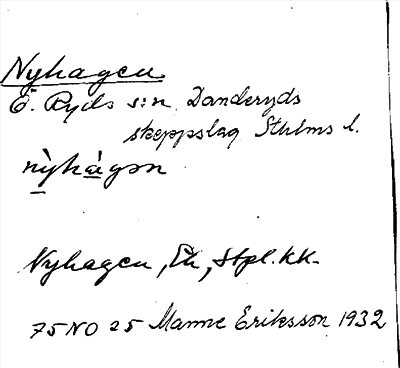 Nyhagen
Ö. Ryds s:n Danderyds
skeppslag Sthlms l.
nỳhàgən
Nyhagen, Eh, Stpl. kk.
75 NO 25 Manne Eriksson 1932